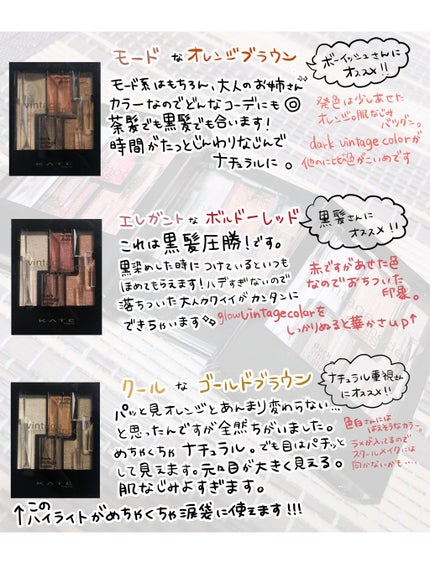 モード な オレンジブラウン
ボーイッシュさんに
オススメ!!
モード系はもちろん、大人のお姉さん
カラーなのでどんなコーデにも◎
茶髪でも黒髪でも合います!
時間がたっとじんわりなじんで
ナチュラルに。
発色は少しあせた
オレンジ。肌なじみ
バツグン。
dark vintage colorが
他のに比べ色がこいめです
vintage
KATE
エレガントな ボルドーレッド
黒髪さんに
オススメ!!
これは黒髪圧勝!です。
黒染めした時につけているといつも
ほめてもらえます!ハデすぎないので
落ちついた大人カワイイがカンタンに
できちゃいます
赤ですがあせた色
なのでおちついた
印象。
glow vintage colorを
しっかりぬると華かさup↑
vintage
KATE
クール な ゴールドブラウン
ナチュラル重視さん
にオススメ!!
パッと見オレンジとあんまり変わらない…
と思ったんですが全然ちがいました。
めちゃくちゃ ナチュラル。でも目はパチッと
して見えます。元々目が大きく見える。
肌なじみよすぎます。
色白さんには
ラメが入ってるので
スクールメイクには
向かないかも….
vintage
KATE
↑この
ハイライトがめちゃくちゃ涙袋に使えます!!!